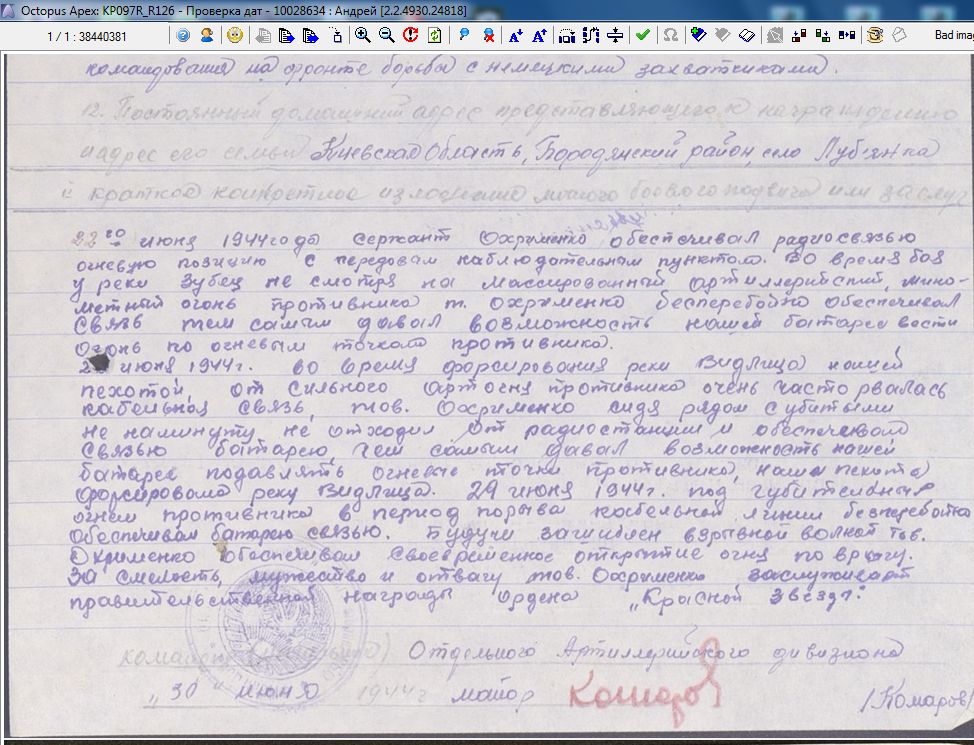 Octopus Apex: KP097R_R126 - Проверка дат - 10028634 : Андрей [2.2.4930.24818]
1 / 1 : 38440381
Bad ima
командования на фронте борьбы с немецкими захватчиками.
12. Постоянный домашний адрес представляющего к награждению
и адрес его семьи Киевская Область, Бородянский район, село Луб'янка
краткое конкретное изложение личного боевого подвига или заслуг
22го июня 1944 годы сержант Охрименко обеспечивал радиосвязью
огневую позицию с передовым наблюдательным пунктом. Во время боя
у реки Зубец не смотря на массированный артиллерийский, мино-
метный огонь противника т. Охрименко бесперебойно обеспечивал
связь тем самым давал возможность нашей батарее вести
огонь по огневым точкам противника.
июня 1944г. во время форсирования реки Видлица нашей
пехотой, от сильного артогня противника очень часто рвалась
кабельная связь, тов. Охрименко сидя рядом с убитыми
не на минуту не отходил от радиостанции и обеспечивал
связью батарею, тем самым давал возможность нашей
батарее подавлять огневые точки противника, наша пехота
форсировала реку Видлица. 29 июня 1944г. под губительным
огнем противника в период порыва кабельной линии бесперебойно
обеспечивал батарею связью. Будучи зашиблен взрывной волной тов.
Охрименко обеспечивал своевременное открытие огня по врагу.
За смелость, мужество и отвагу тов. Охрименко заслуживает
правительственной награды ордена „Красной Звезды".
командир Отдельного Артиллерийского дивизиона
„30" июня 1944г майор Комаров /Комаров/